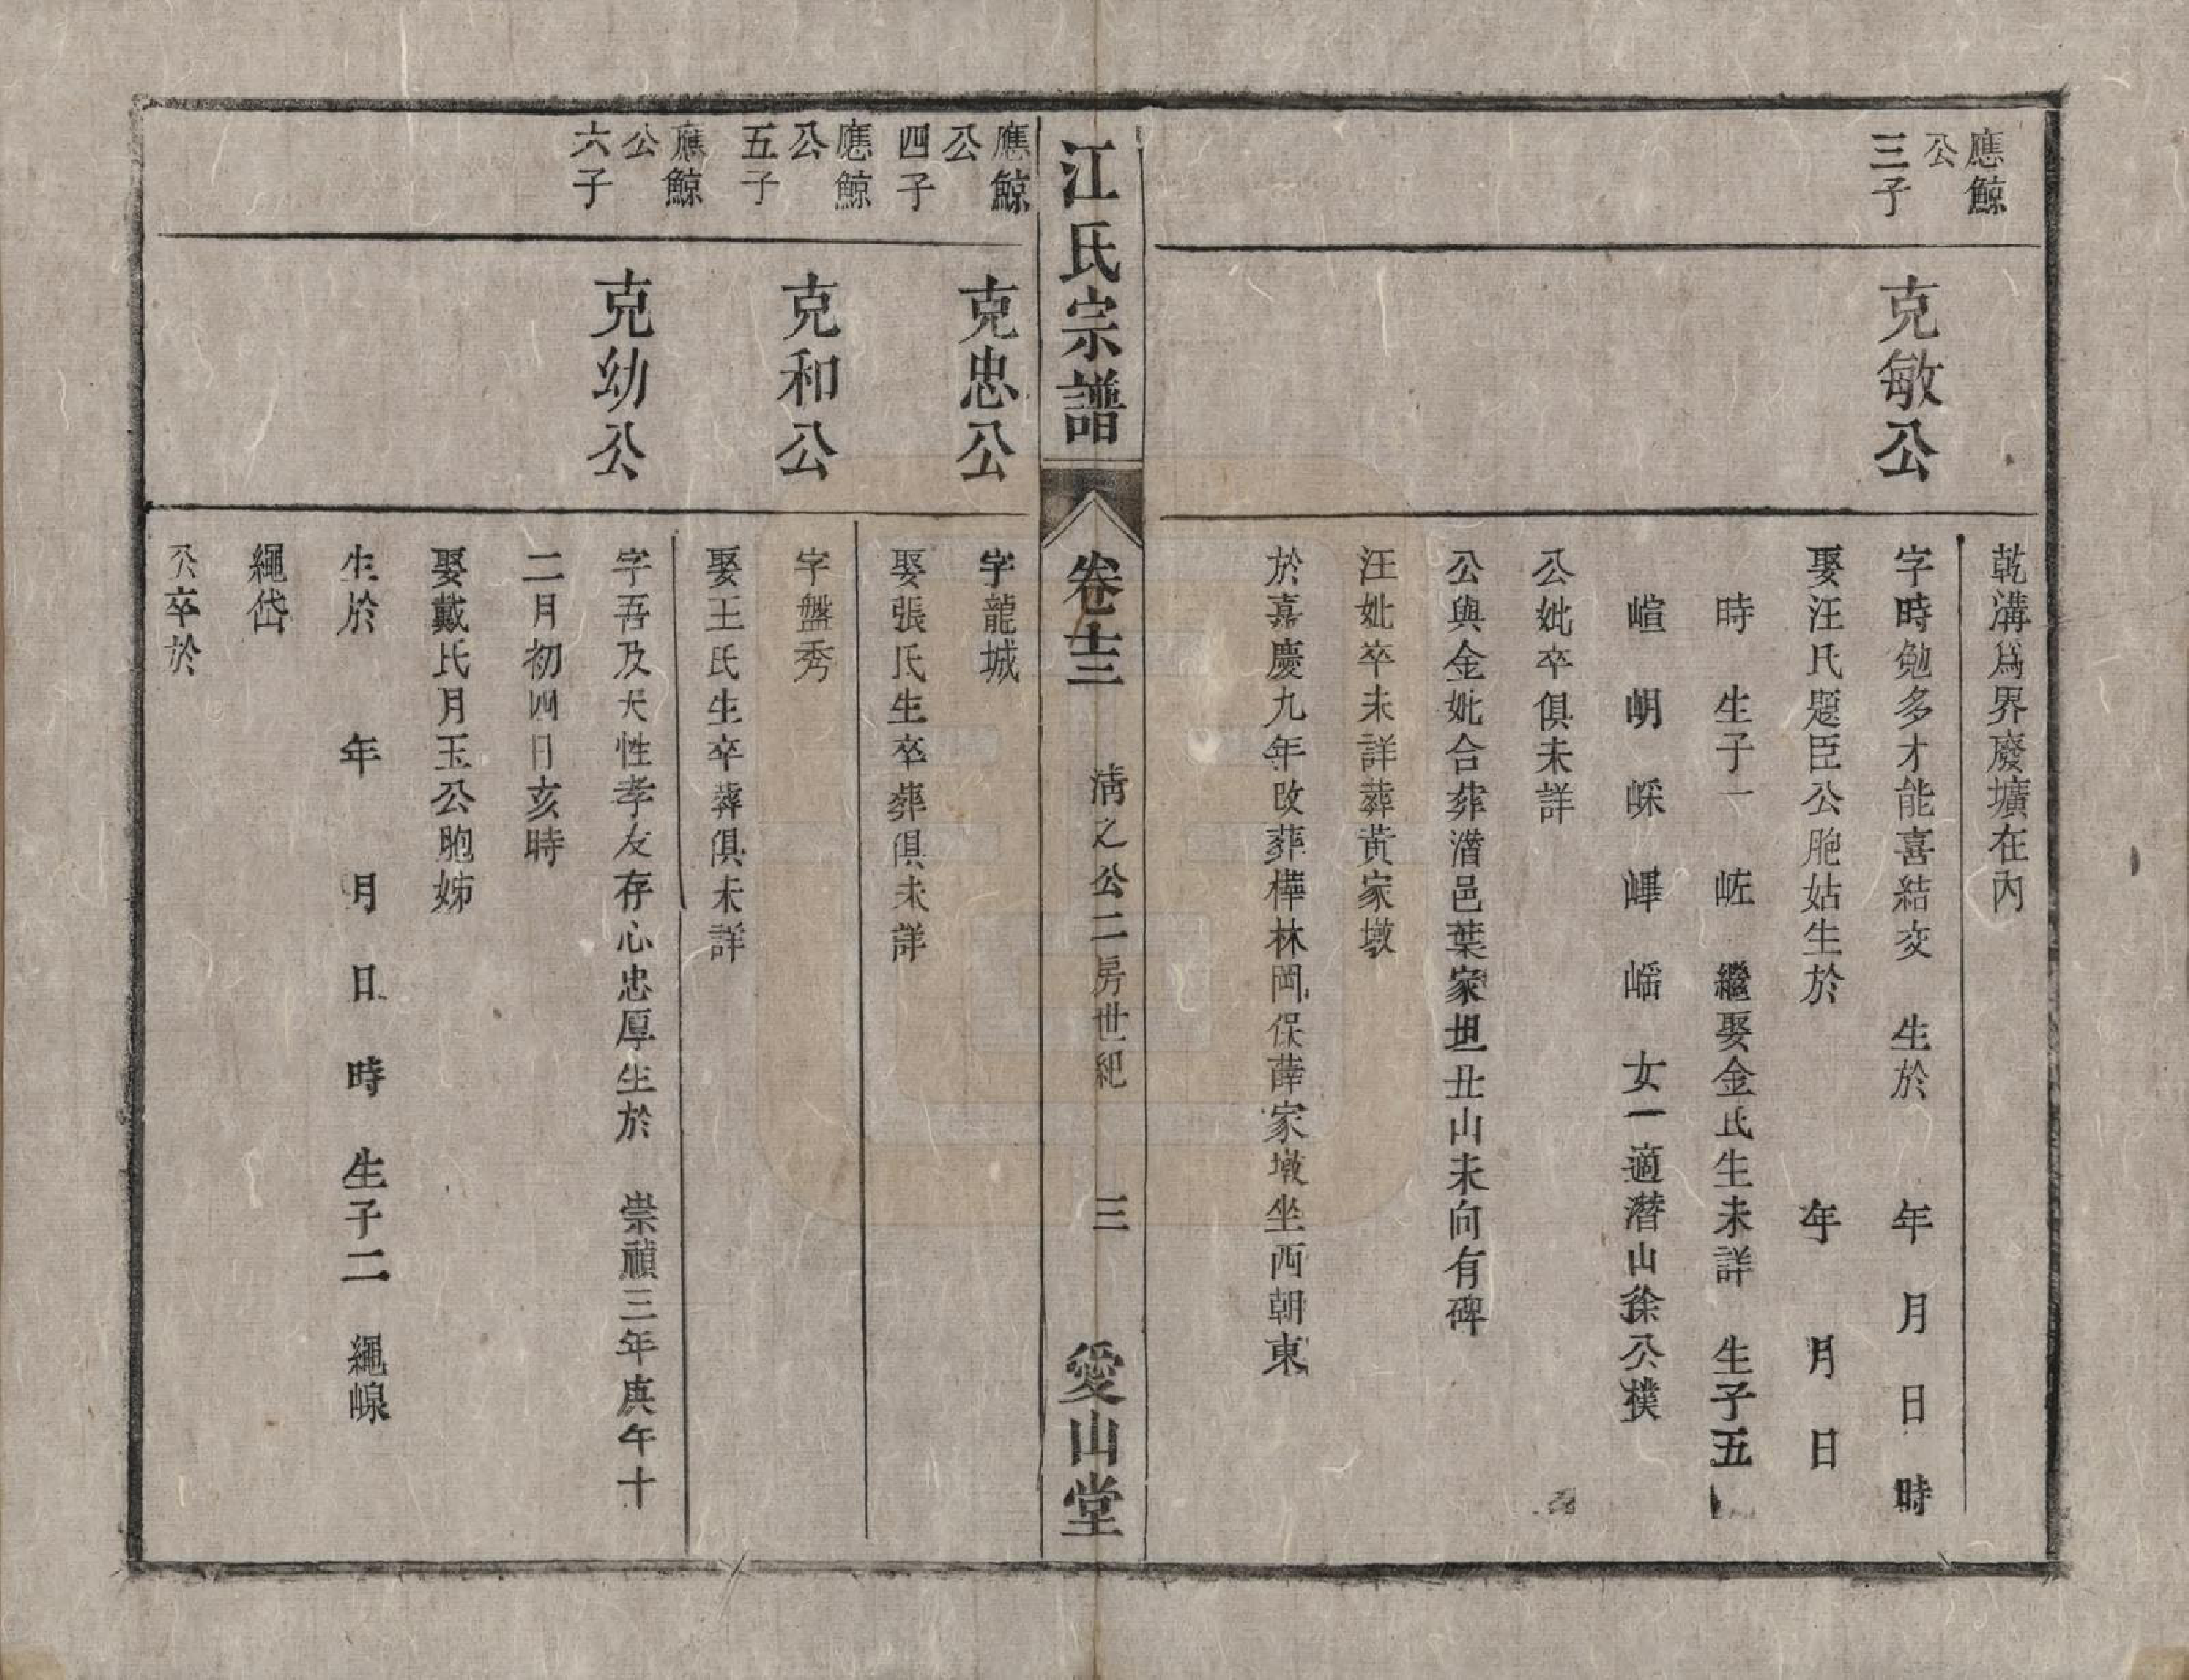 乾溝爲界廢壙在內
應鯨
公
三子
克敏公
字時勉多才能喜結交 生於 年 月 日 時
娶汪氏題臣公胞姑生於 年 月 日
時 生子一 㞹 繼娶金氏生未詳 生子五
㟨 明 䌽 㟸 㟱 女一適潛山徐公樸
公妣卒俱未詳
公與金妣合葬潛邑葉家坦丑山未向有碑
汪妣卒未詳葬黃家墩
於嘉慶九年改葬樺林岡保薛家墩坐西朝東
江氏宗譜
卷十三
清之公二房世紀
三
愛山堂
應鯨
公
四子
克忠公
字龍城
娶張氏生卒葬俱未詳
應鯨
公
五子
克和公
字盤秀
娶王氏生卒葬俱未詳
應鯨
公
六子
克幼公
字吾及天性孝友存心忠厚生於 崇禎三年庚午十
二月初四日亥時
娶戴氏月玉公胞姊
生於 年 月 日 時 生子二 繩
繩岱
公卒於